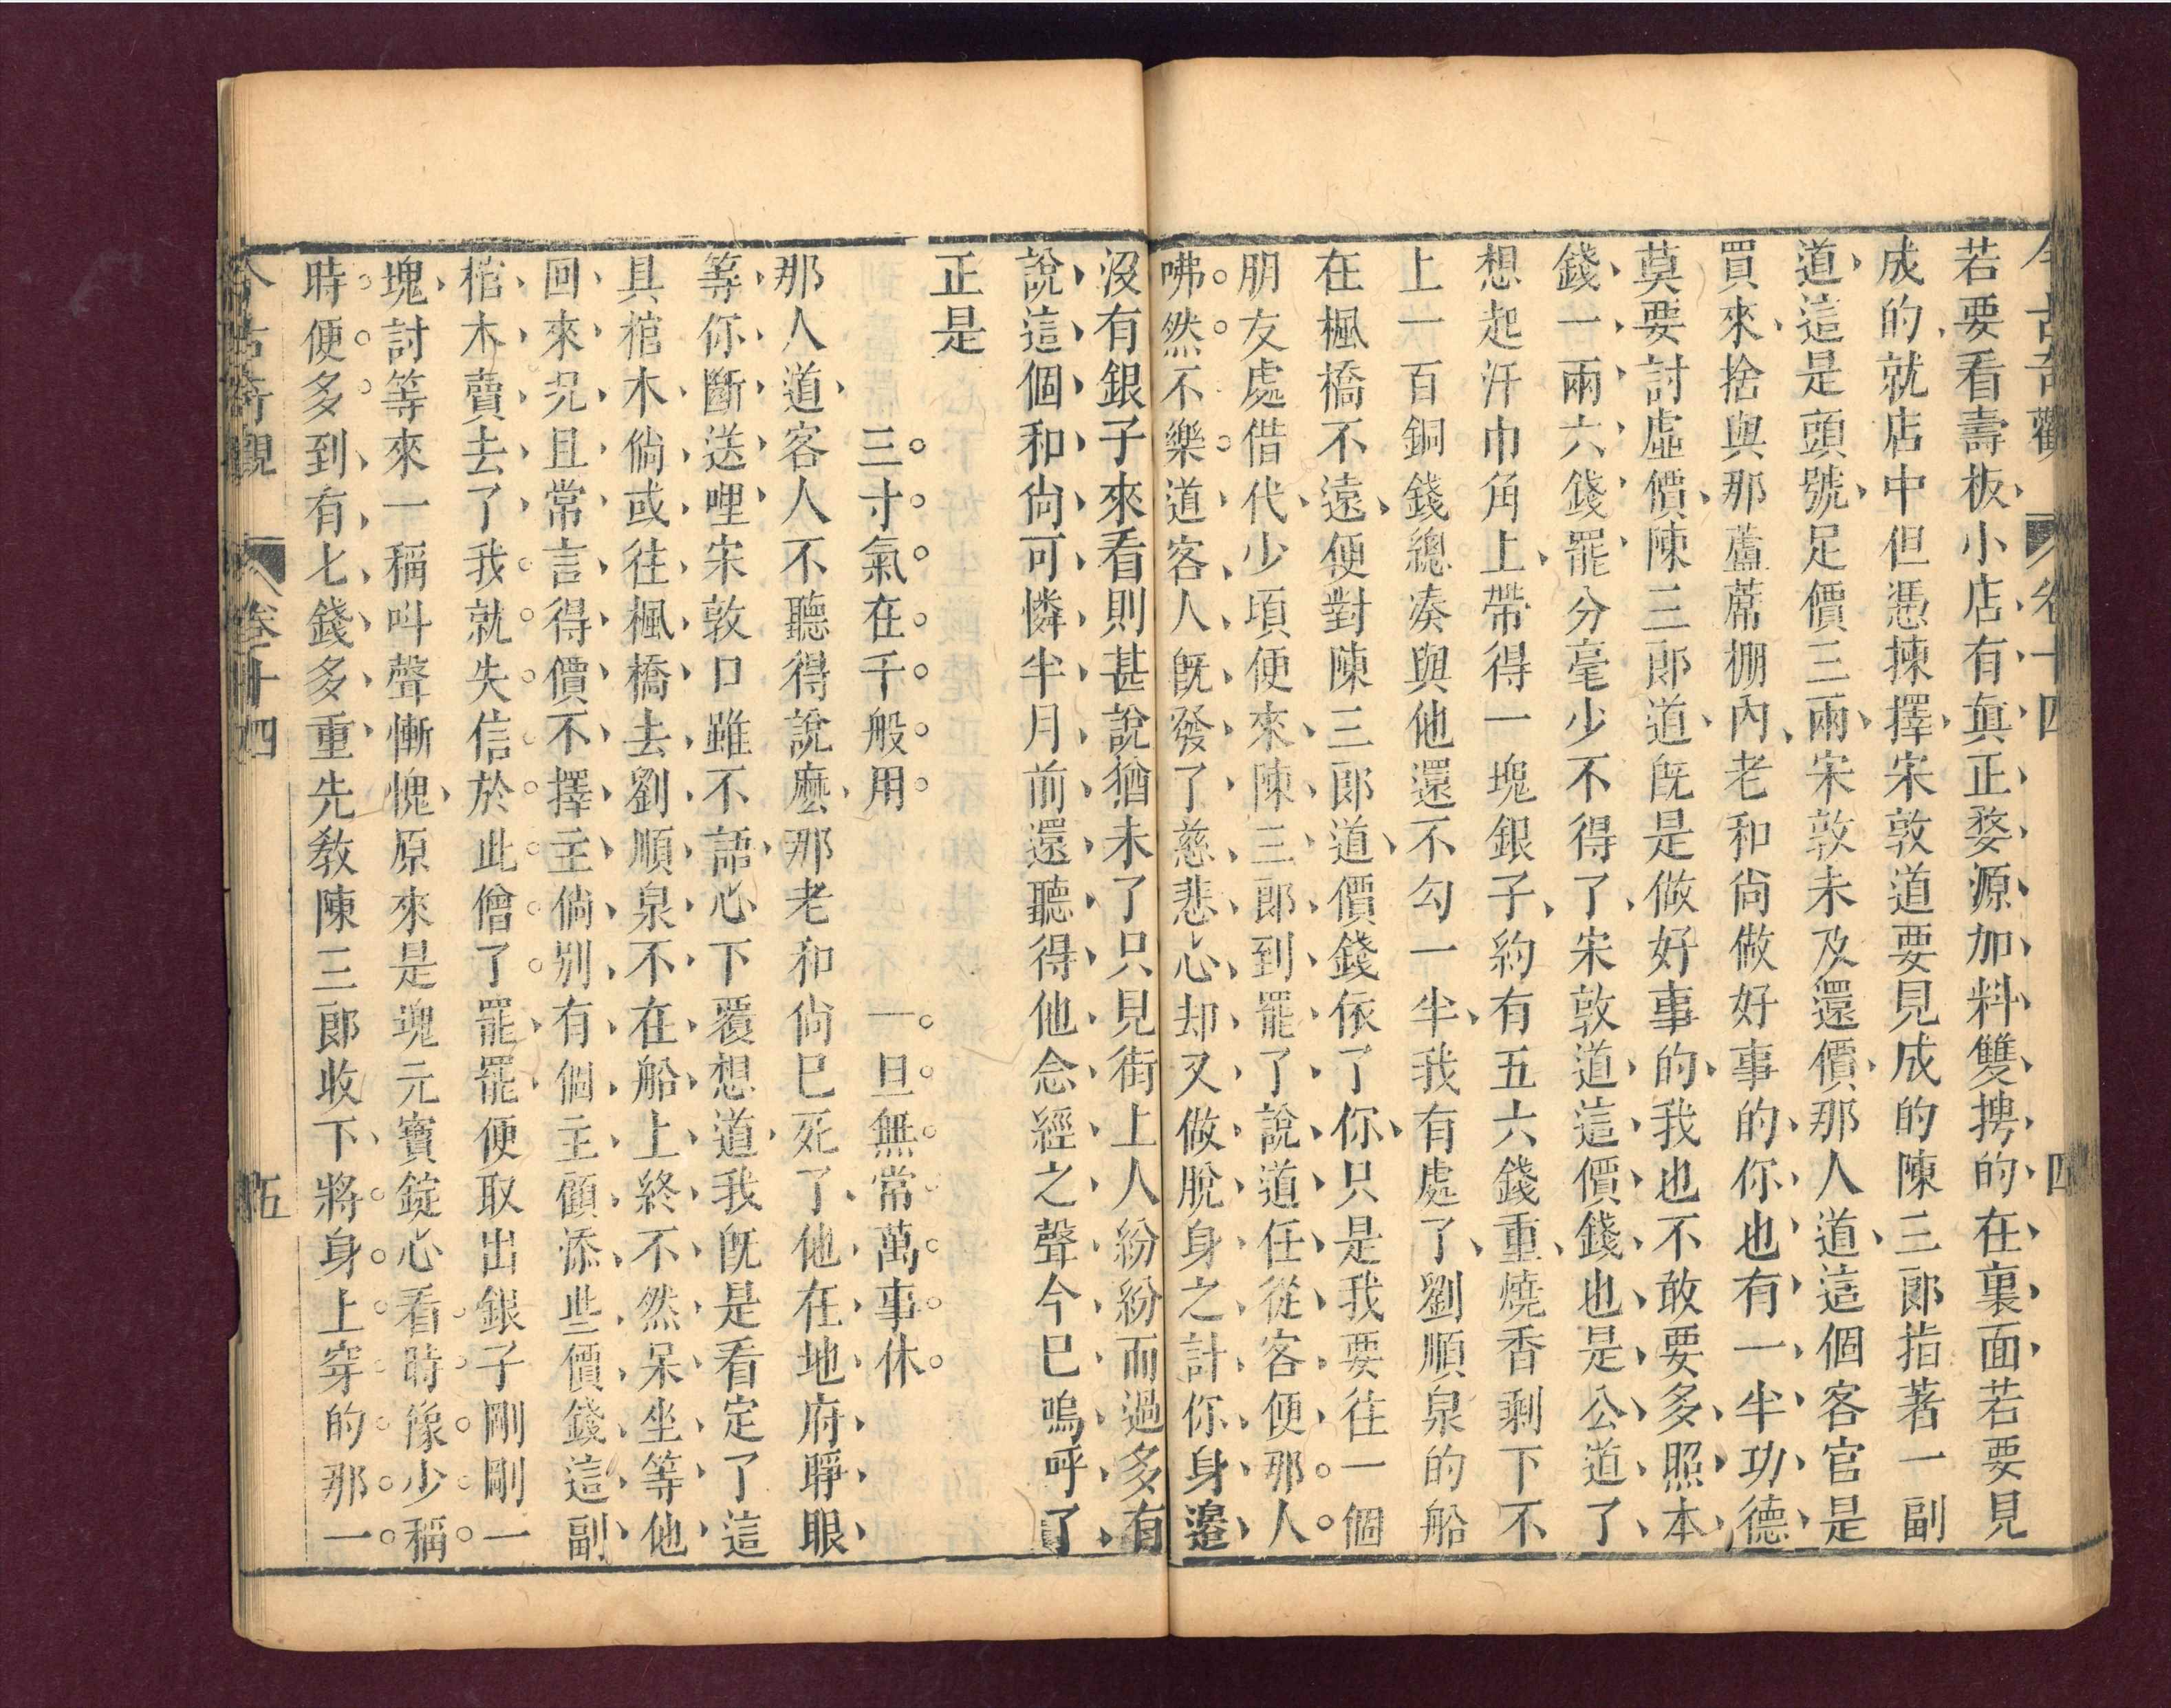 今古奇觀　卷十四　四
若要看壽板小店有真正婺源加料雙拼的在裏面若要見
成的就店中但憑揀擇宋敦道要見成的陳三郎指著一副
道這是頭號足價三兩宋敦未及還價那人道這個客官是
買來捨與那蘆蓆棚內老和尚做好事的你也有一半功德
莫要討虛價陳三郎道旣是做好事的我也不敢要多照本
錢一兩六錢罷分毫少不得了宋敦道這價錢也是公道了
想起汗巾角上帶得一塊銀子約有五六錢重燒香剩下不
上一百銅錢總凑與他還不勾一半我有處了劉順泉的船
在楓橋不遠便對陳三郎道價錢依了你只是我要往一個
朋友處借代少頃便來陳三郎到罷了說道任從客便那人
咈然不樂道客人旣發了慈悲心却又做脫身之計你身邊
沒有銀子來看則甚說猶未了只見街上人紛紛而過多有
說這個和尚可憐半月前還聽得他念經之聲今巳嗚呼了
正是
三寸氣在千般用　一旦無常萬事休
那人道客人不聽得說麽那老和尚巳死了他在地府睜眼
等你斷送哩宋敦口雖不語心下覆想道我旣是看定了這
具棺木倘或往楓橋去劉順泉不在船上終不然呆坐等他
回來况且常言得價不擇主倘別有個主顧添些價錢這副
棺木賣去了我就失信於此僧了罷罷便取出銀子剛剛一
塊討等來一稱呌聲慚愧原來是塊元寶錠心看時像少稱
時便多到有七錢多重先敎陳三郎收下將身上穿的那一
今古奇觀　卷十四　五